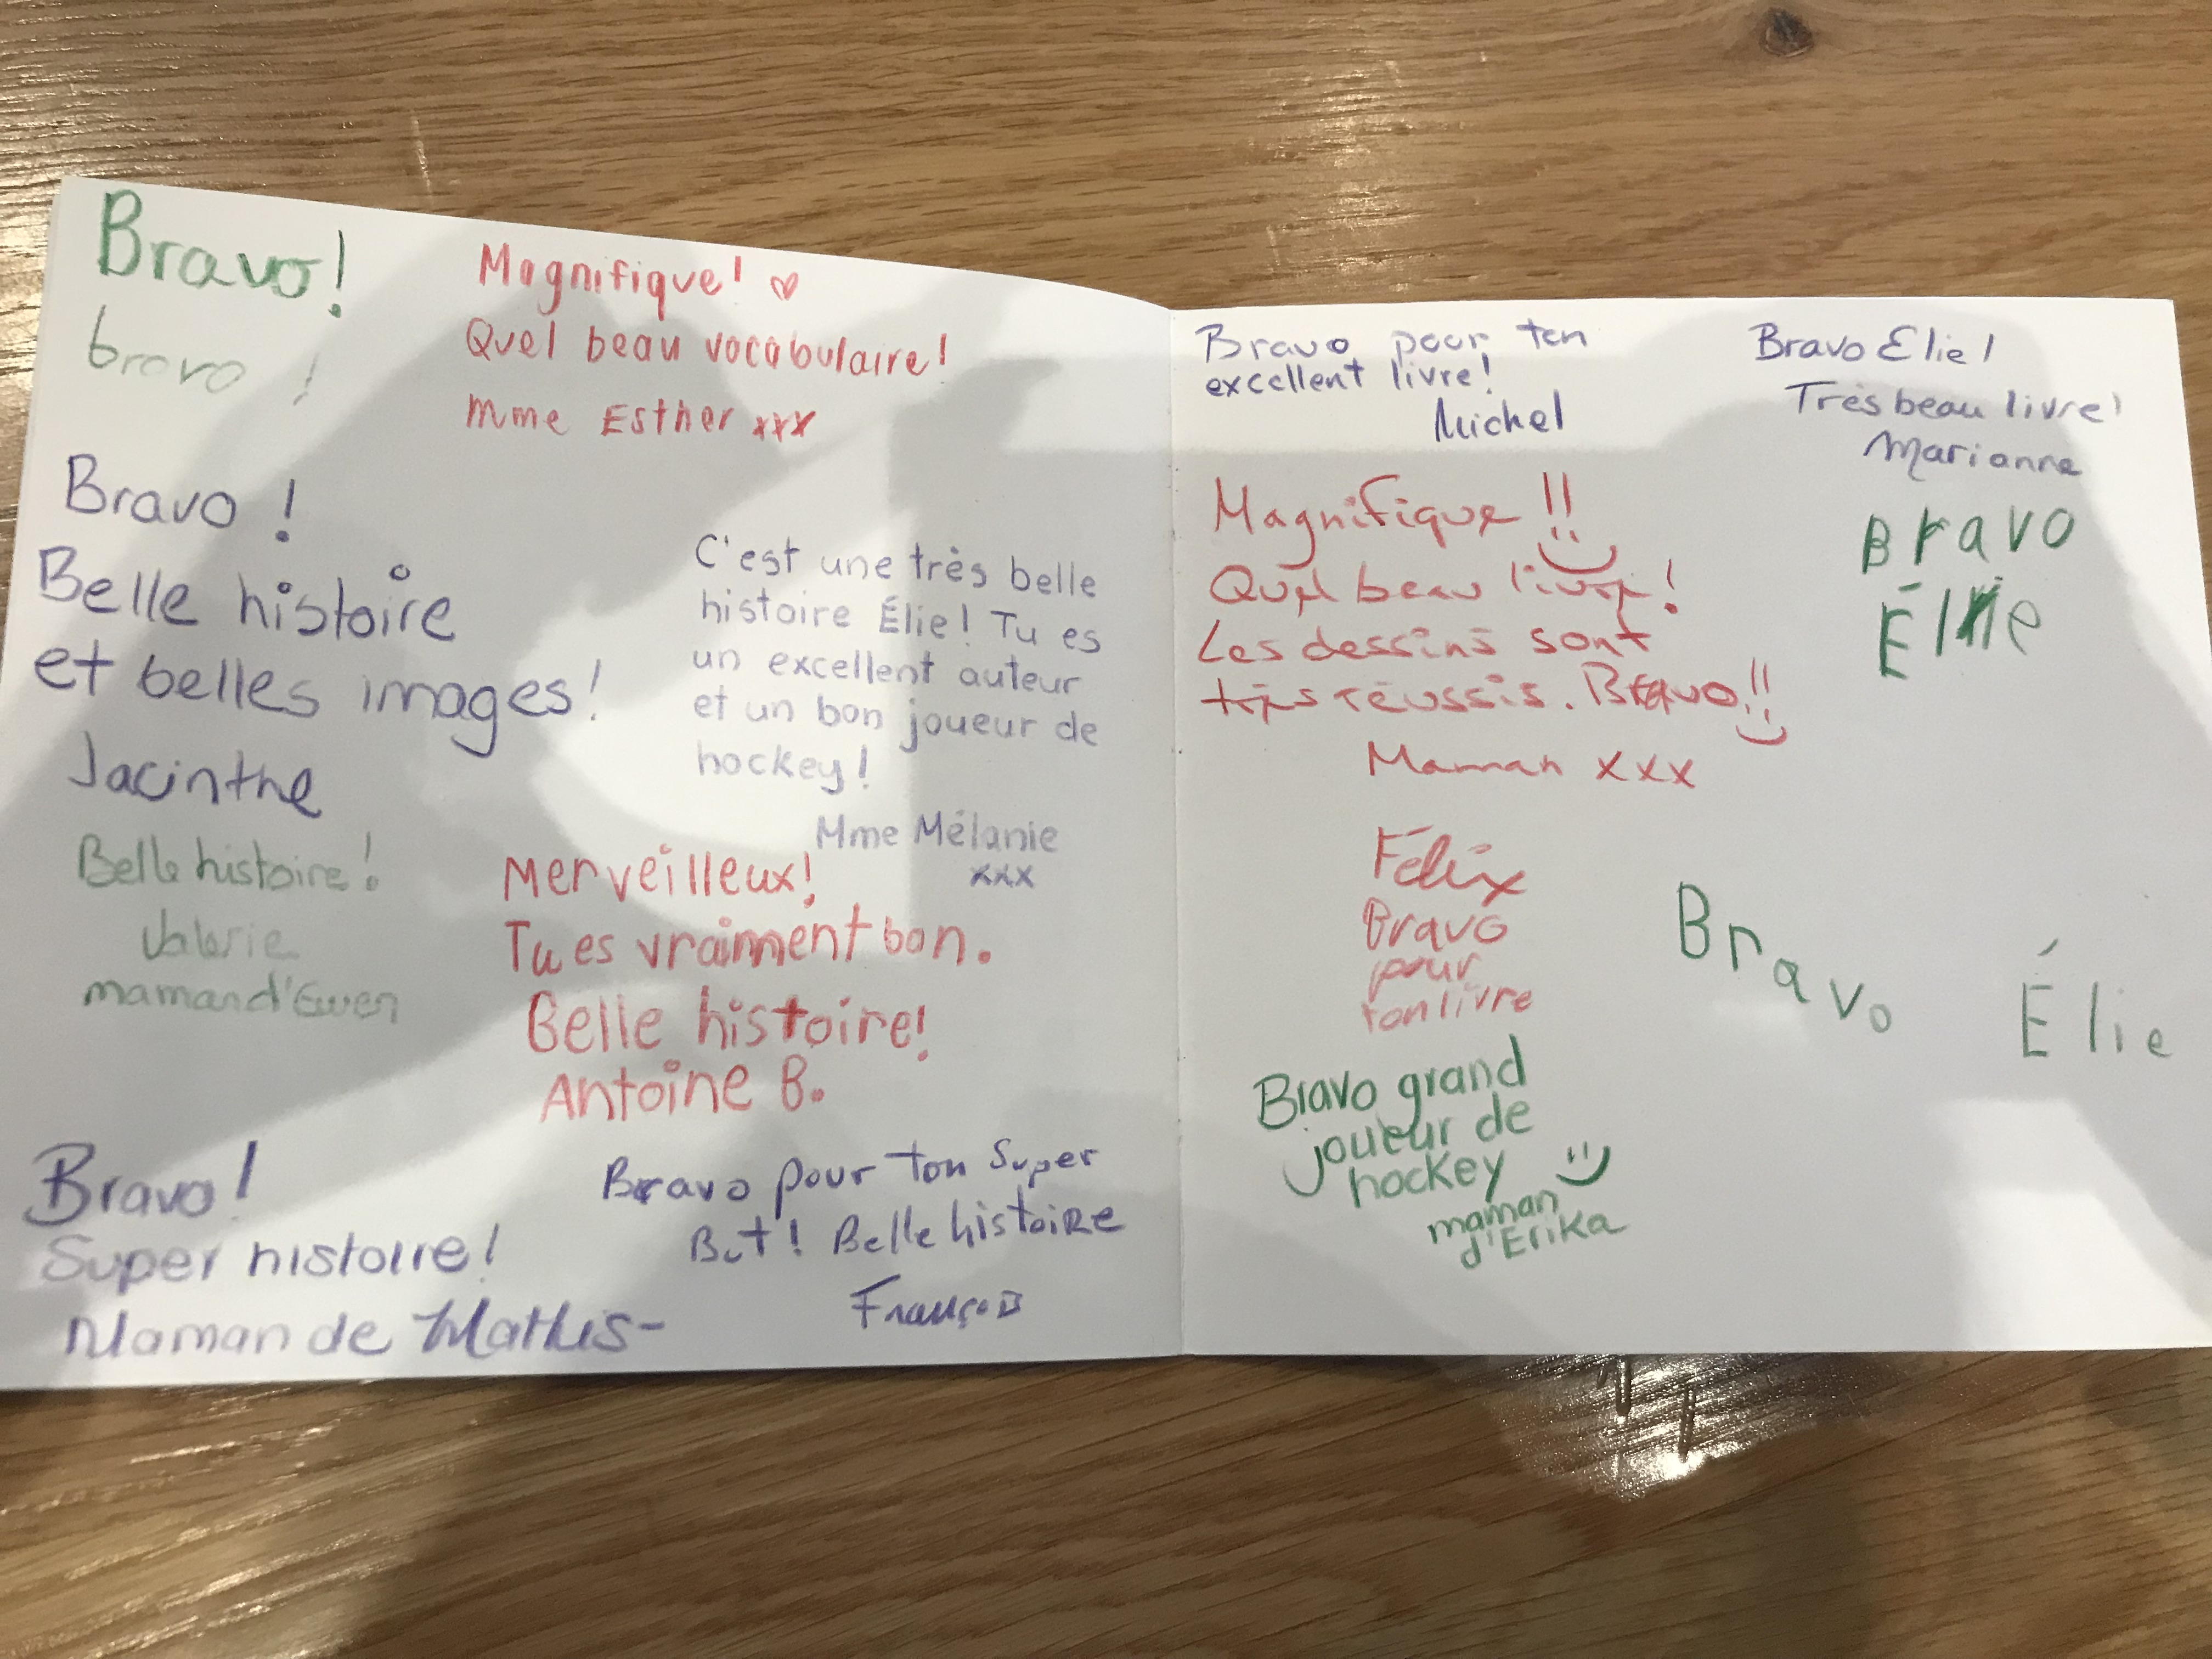 Bravo!
bravo !
Magnifique! ♡
Quel beau vocabulaire!
Mme Esther xxx
Bravo !
Belle histoire
et belles images!
Jacinthe
C'est une très belle
histoire Élie! Tu es
un excellent auteur
et un bon joueur de
hockey!
Mme Mélanie
xxx
Belle histoire!
Valerie
maman d'Ewen
Merveilleux!
Tu es vraiment bon.
Belle histoire!
Antoine B.
Bravo!
Super histoire!
Maman de Mathis-
Bravo pour ton super
But! Belle histoire
François
Bravo pour ton
excellent livre!
Michel
Bravo Elie!
Très beau livre!
Marianne
Magnifique!!
Quel beau livre!
Les dessins sont
très réussis. Bravo!!
Maman xxx
Bravo
Élie
Félix
Bravo
pour
ton livre
Bravo
Élie
Bravo grand
joueur de
hockey
maman
d'Erika